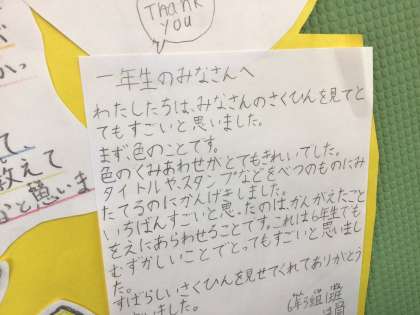 Thank
you
一年生のみなさんへ
わたしたちは、みなさんのさくひんを見てと
てもすごいと思いました。
まず、色のことです。
色のくみあわせがとてもきれいでした。
タイトルや、スタンプなどをべつのものにみ
たてるのにかんげきしました。
いちばんすごいと思ったのは、かんがえたこと
をえにあらわせることです。これは6年生でも
むずかしいことでとってもすごいと思いまし
た。
すばらしいさくひんを見せてくれてありがとう
いました。
6年3組
教えて
と思いま